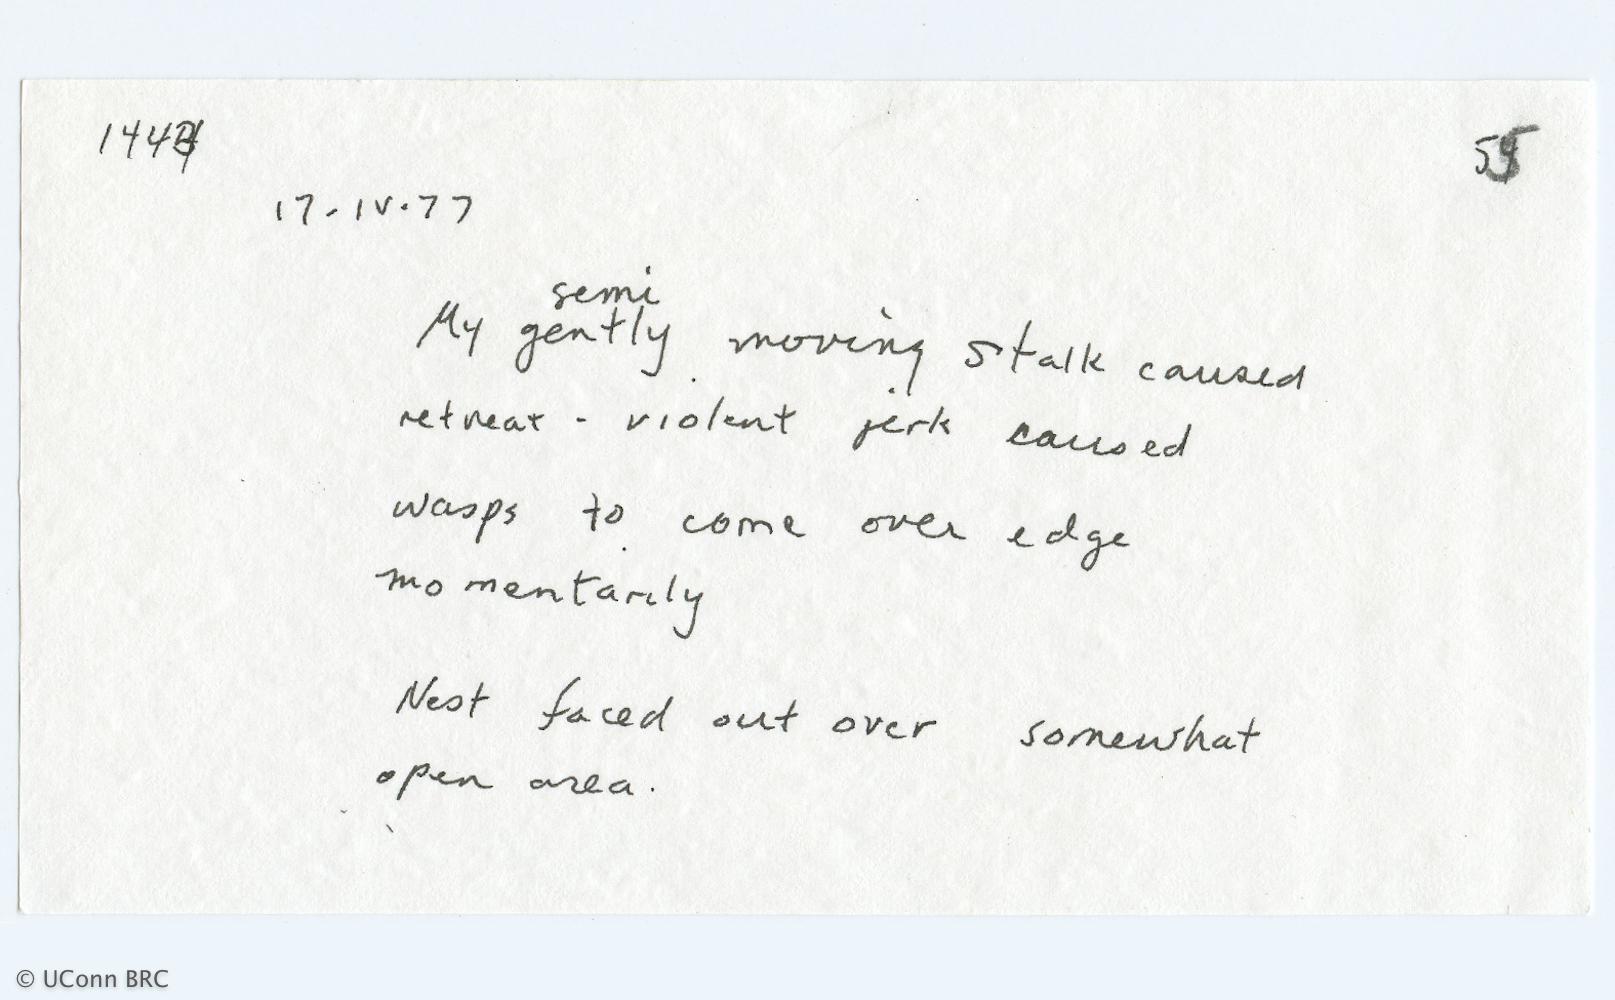 1444
55
17-IV-77
semi
My gently moving stalk caused
retreat - violent jerk caused
wasps to come over edge
momentarily
Nest faced out over somewhat
open area.
© UConn BRC